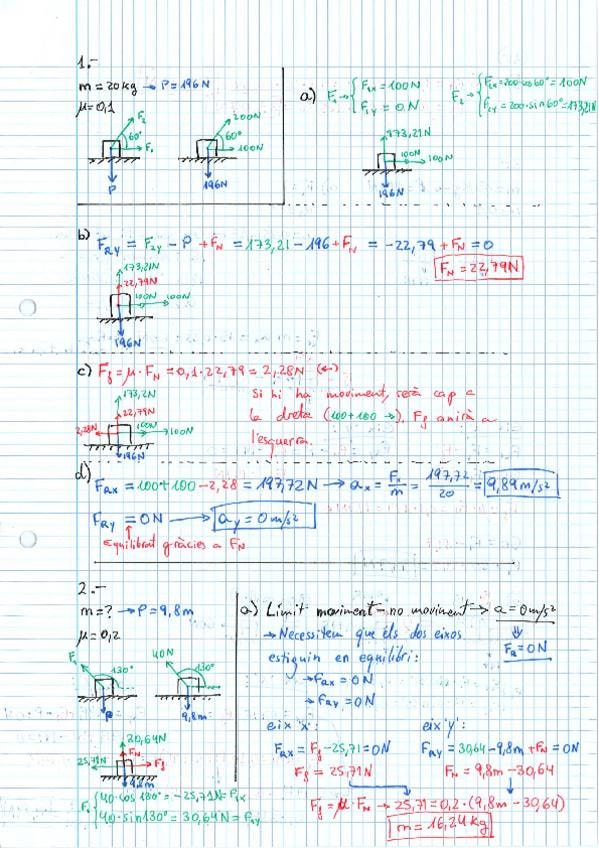 1.-
m = 20kg → P = 196N
μ = 0,1
F₂
60°
F₁
P
200N
60°
100N
196N
a) F₁ → { F₁ₓ = 100N
F₁y = 0N
F₂ → { F₂ₓ = 200·cos60° = 100N
F₂y = 200·sin60° = 173,21N
173,21N
100N
100N
196N
b) F_RY = F₂y - P + F_N = 173,21 - 196 + F_N = -22,79 + F_N = 0
F_N = 22,79N
173,21N
22,79N
100N 100N
196N
c) F_f = μ · F_N = 0,1 · 22,79 = 2,28N (←)
Si hi ha moviment, serà cap a
la dreta (100+100 →), F_f anirà a
l'esquerra.
173,2N
22,79N
2,28N
100N 100N
196N
d) F_RX = 100+100-2,28 = 197,72N → aₓ = Fₓ/m = 197,72/20 = 9,89m/s²
F_RY = 0N → a_y = 0m/s²
Equilibrat gràcies a F_N
2.-
m = ? → P = 9,8m
μ = 0,2
F₁
130°
P
40N
130°
9,8m
30,64N
F_N
25,71N
F_f
9,8m
F₁ { 40·cos 130° = -25,71N = F₁ₓ
40·sin130° = 30,64N = F₁y
a) Límit moviment - no moviment → a = 0m/s²
⇓
F_R = 0N
→ Necessitem que els dos eixos
estiguin en equilibri:
→ F_RX = 0N
→ F_RY = 0N
eix 'x':
F_RX = F_f - 25,71 = 0N
F_f = 25,71N
eix 'y':
F_RY = 30,64 - 9,8m + F_N = 0N
F_N = 9,8m - 30,64
F_f = μ · F_N → 25,71 = 0,2 · (9,8m - 30,64)
m = 16,24kg